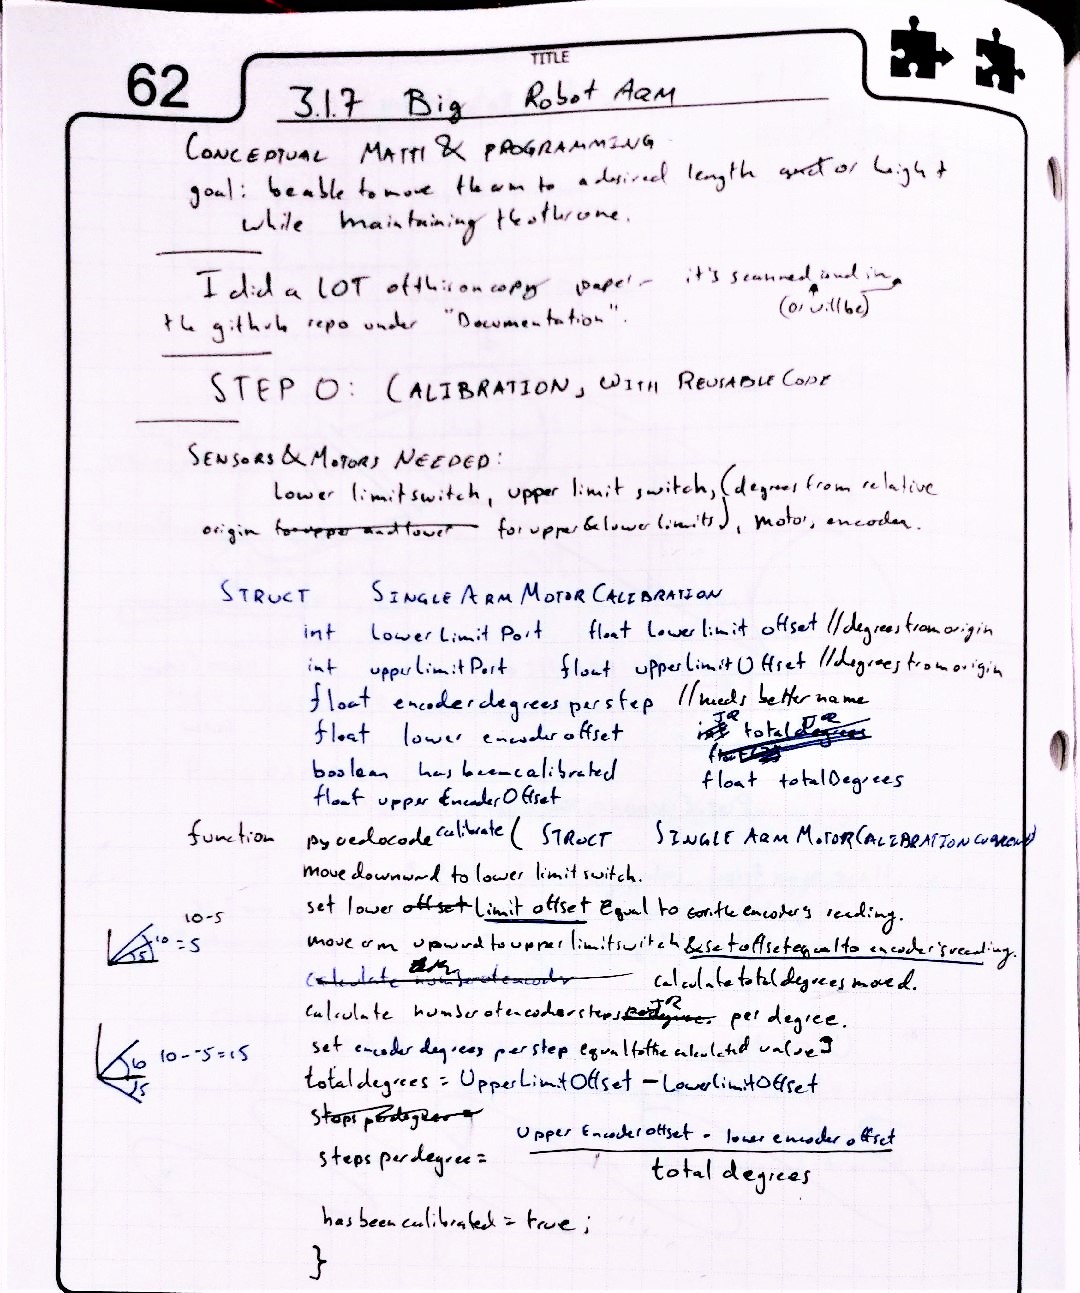 62
TITLE
3.1.7 Big Robot Arm
CONCEPTUAL MATH & PROGRAMMING
goal: be able to move the arm to a desired length or height
while maintaining the other one.
I did a LOT of this on copy paper - it's scanned and in
(or will be)
the github repo under "Documentation".
STEP 0: CALIBRATION, WITH REUSABLE CODE
SENSORS & MOTORS NEEDED:
Lower limit switch, upper limit switch, (degrees from relative
origin for upper and lower for upper & lower limits), motor, encoder.
STRUCT SINGLE ARM MOTOR CALIBRATION
int Lower Limit Port float Lower limit offset //degrees from origin
int upper Limit Port float upper Limit Offset //degrees from origin
float encoder degrees per step //needs better name
float lower encoder offset JR total JR
boolean has been calibrated float totalDegrees
float upper Encoder Offset
function psuedocode calibrate ( STRUCT SINGLE ARM MOTOR CALIBRATION current)
move downward to lower limit switch.
10-5
set lower offset limit offset Equal to the encoder's reading.
10 = 5
5
move arm upward to upper limit switch & set offset equal to encoder's reading.
calculate calculate total degrees moved.
JR
calculate number of encoder steps per degree.
6 10--5=15
5
set encoder degrees per step equal to the calculated value
total degrees = Upper Limit Offset - Lower Limit Offset
steps per degree =
Upper Encoder offset - lower encoder offset
steps per degree =
total degrees
has been calibrated = true;
}